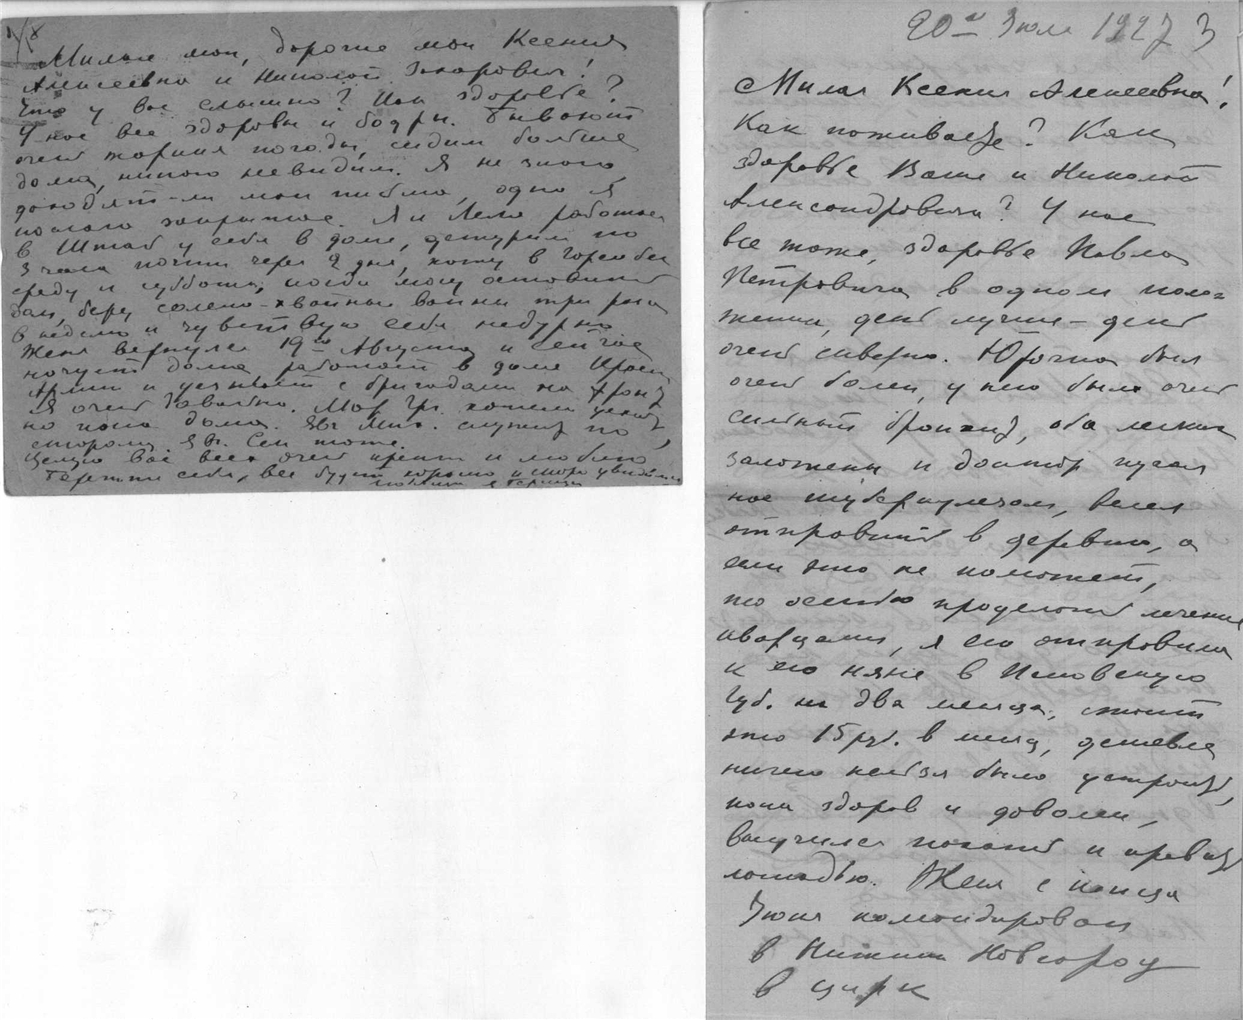 Милые мои, дорогие мои Ксения
Алексеевна и Николай Захарович!
Что у вас слышно? Как здоровье?
У нас все здоровы и бодры. Бывают
очень жаркия погоды, сидим больше
дома, никого невидим. Я не знаю,
доходят-ли мои письма, одно я
послала закрытое. Я и Леля работаем
в Штабе у себя в доме, дежурим по
3 часа почти через 2 дня, хожу в
среду и субботу, когда могу оставить
дом, беру солено-хвойные ванны три раза
в неделю и чувствую себя недурно.
Женя вернулся 19го Августа и сейчас
ночует дома работает в доме Красн.
Армии и уезжает с бригадами на фронт
Я очень
но пока дома. служит по
сторожа тоже.
Целую вас всех очень крепко и люблю,
Берегите себя, все будет хорошо и скоро увидимся
20го Июля 1927 3
Милая Ксения Алексеевна!
Как поживаете? Как
здоровье Ваше и Николая
Александровича? У нас
все тоже, здоровье Павла
Петровича в одном поло-
жении, день лучше – день
очень скверно. Юрочка был
очень болен, у него был очень
сильный бронхит, оба легких
заложены и доктор пугал
нас туберкулезом, велел
отправить в деревню, а
если это не поможет,
то осенью проделать лечение
кварцами, я его отправила
к его няне в Псковскую
Губ. на два месяца, стоит
это 15 руб. в месяц, дешевле
ничего нельзя было устроить,
пока здоров и доволен,
выучился пахать и править
лошадью. Женя с конца
Июня командирован
в Нижний Новгород
в цирк